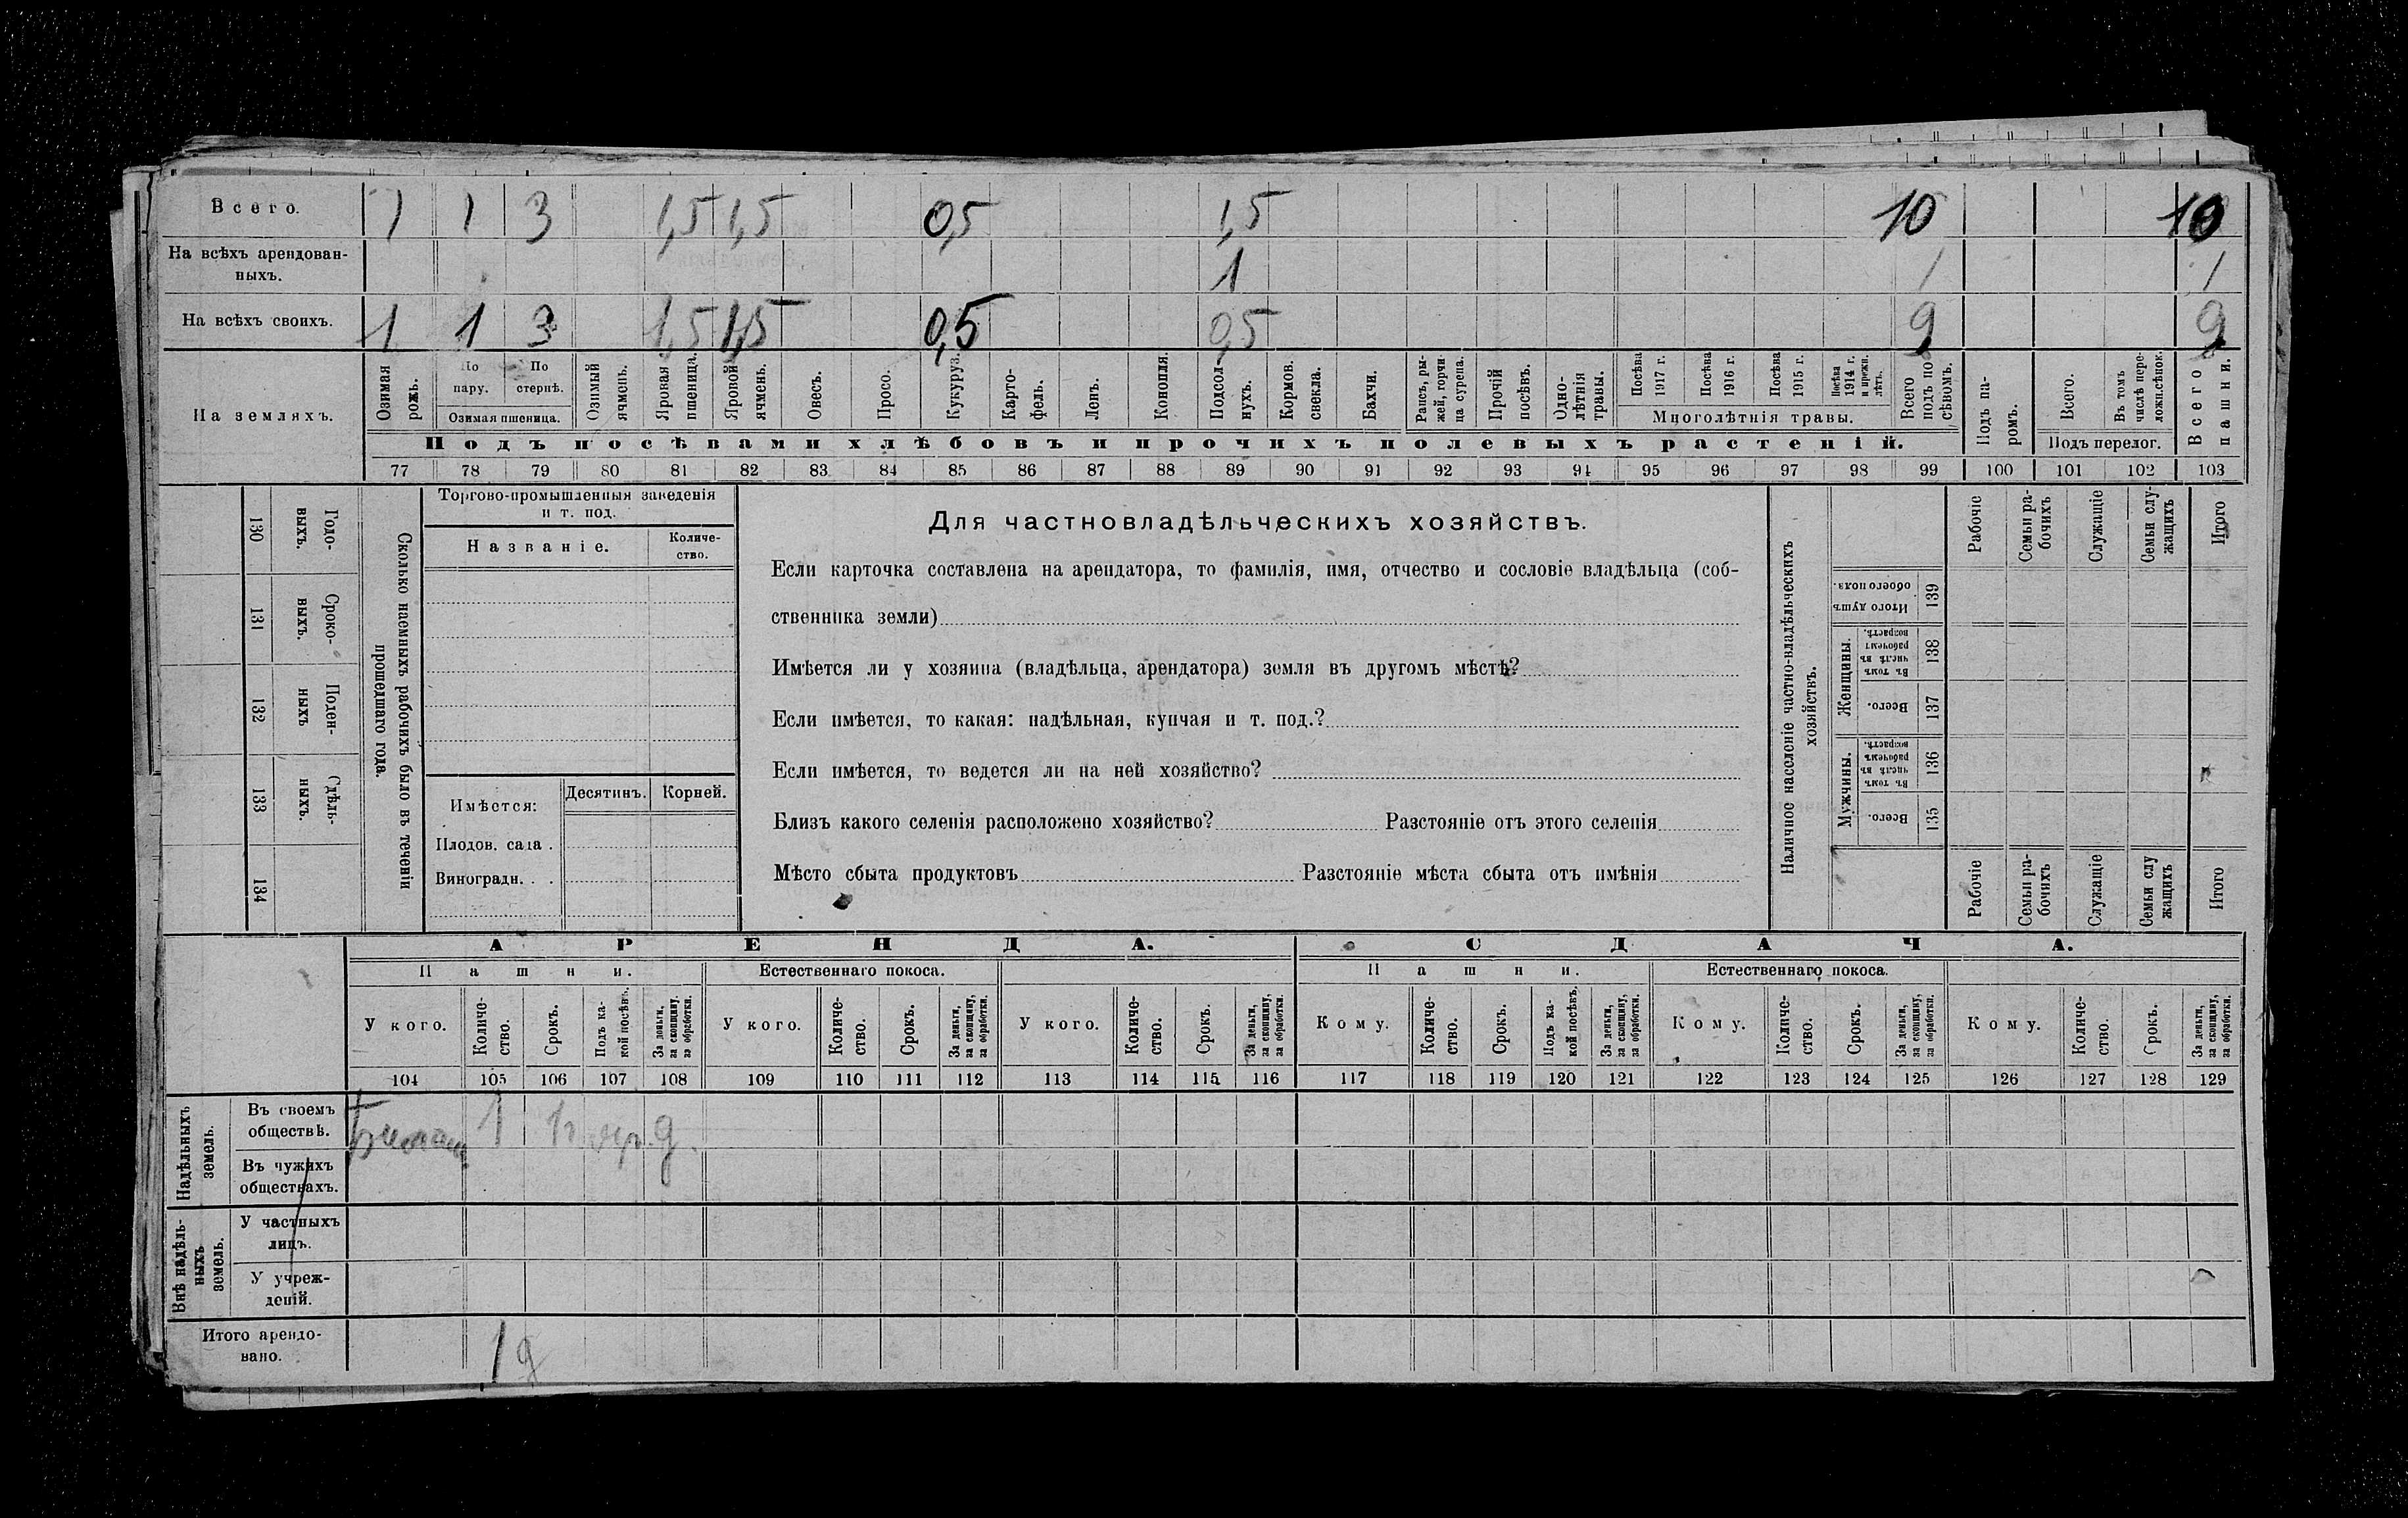 Всего. 1 1 3 1,5 1,5 0,5 1,5 10 10
На всѣхъ арендован-
ныхъ. 1 1 1
На всѣхъ своихъ. 1 1 3 1,5 1,5 0,5 0,5 9 9
На земляхъ.
Озимая рожь.
По пару.
По стернѣ.
Озимая пшеница.
Озимый ячмень.
Яровая пшеница.
Яровой ячмень.
Овесъ.
Просо.
Кукуруз.
Карто-
фель.
Ленъ.
Конопля.
Подсол-
нухъ.
Кормов. свекла.
Бахчи.
Рапсъ, ры-
жей, горчи-
ца сурепа.
Прочій посѣвъ.
Одно-
лѣтнія травы.
Посѣва 1917 г.
Посѣва 1916 г.
Посѣва 1915 г.
Посѣва 1914 г. и прежн. лѣтъ.
Многолѣтнія травы.
Всего подъ по-
сѣвомъ.
Подъ па-
ромъ.
Всего.
Въ томъ числѣ пере-
ложн. сѣнок.
Подъ перелог.
Всего пашни.
Подъ посѣвами хлѣбовъ и прочихъ полевыхъ растеній.
77 78 79 80 81 82 83 84 85 86 87 88 89 90 91 92 93 94 95 96 97 98 99 100 101 102 103
130 Годо-
выхъ.
131 Сроко-
выхъ.
132 Поден-
ныхъ
133 Сдѣль-
ныхъ.
134
Сколько наемныхъ рабочихъ было въ теченіи
прошедшаго года.
Торгово-промышленныя заведенія
и т. под.
Названіе.
Количе-
ство.
Имѣется:
Десятинъ. Корней.
Плодов. сада .
Виноградн. . .
Для частновладѣльческихъ хозяйствъ.
Если карточка составлена на арендатора, то фамилія, имя, отчество и сословіе владѣльца (соб-
ственника земли)
Имѣется ли у хозяина (владѣльца, арендатора) земля въ другомъ мѣстѣ?
Если имѣется, то какая: надѣльная, купчая и т. под.?
Если имѣется, то ведется ли на ней хозяйство?
Близъ какого селенія расположено хозяйство? Разстояніе отъ этого селенія
Мѣсто сбыта продуктовъ Разстояніе мѣста сбыта отъ имѣнія
Наличное населеніе частно-владѣльческихъ
хозяйствъ.
Рабочіе
Семьи ра-
бочихъ
Служащіе
Семьи слу-
жащихъ
Итого
Итого душъ обоего пола. 139
Женщины.
Въ томъ числѣ въ рабочемъ возрастѣ. 138
Всего. 137
Мужчины.
Въ томъ числѣ въ рабочемъ возрастѣ. 136
Всего. 135
Рабочіе
Семьи ра-
бочихъ
Служащіе
Семьи слу
жащихъ
Итого
АРЕНДА. СДАЧА.
Пашни. Естественнаго покоса. Пашни. Естественнаго покоса.
У кого.
Количе-
ство.
Срокъ.
Подъ ка-
кой посѣвъ.
За деньги, за скопщину, за обработки.
У кого.
Количе-
ство.
Срокъ.
За деньги, за скопщину, за обработки.
У кого.
Количе-
ство.
Срокъ.
За деньги, за скопщину, за обработки.
Кому.
Количе-
ство.
Срокъ.
Подъ ка-
кой посѣвъ.
За деньги, за скопщину, за обработки.
Кому.
Количе-
ство.
Срокъ.
За деньги, за скопщину, за обработки.
Кому.
Количе-
ство.
Срокъ.
За деньги, за скопщину, за обработки.
104 105 106 107 108 109 110 111 112 113 114 115 116 117 118 119 120 121 122 123 124 125 126 127 128 129
Надѣльныхъ
земель.
Въ своемъ
обществѣ. 1 1г д.
Въ чужихъ
обществахъ.
Внѣ надѣль-
ныхъ
земель.
У частныхъ
лицъ.
У учреж-
деній.
Итого арендо-
вано. 1 д